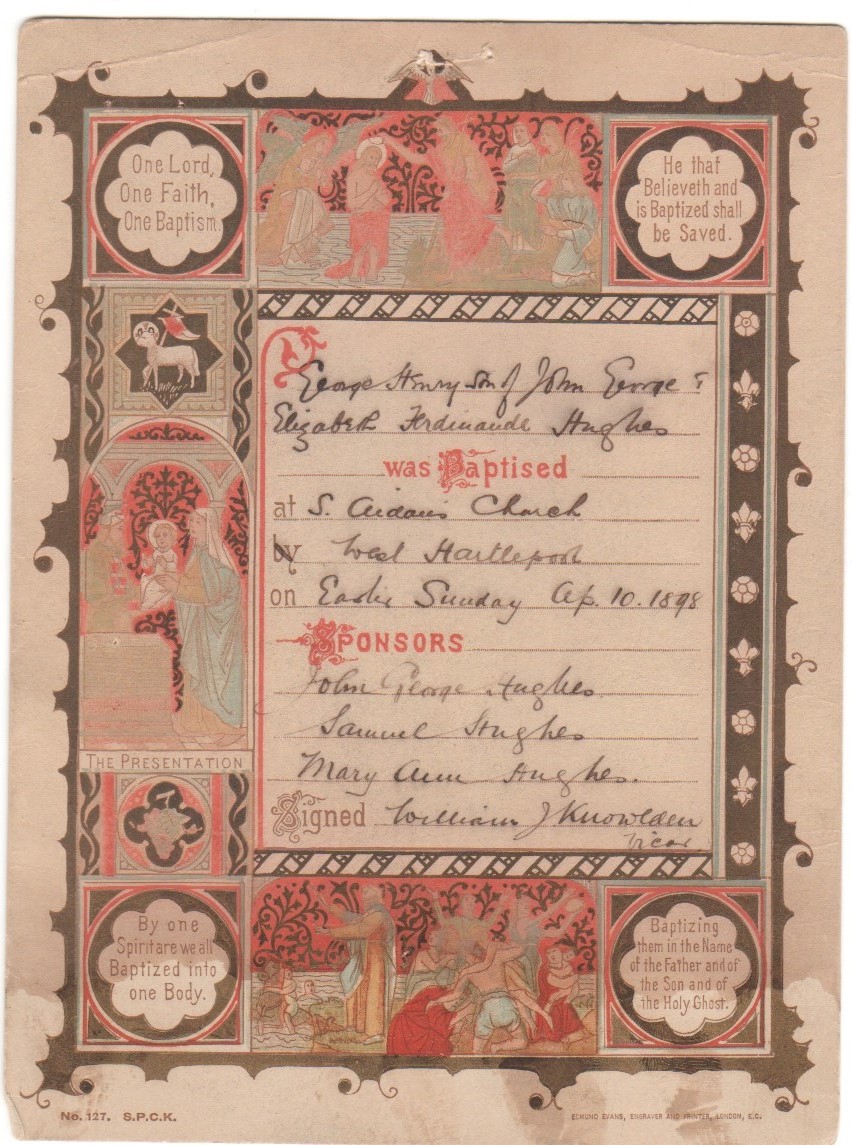 One Lord,
One Faith,
One Baptism.
He that
Believeth and
is Baptized shall
be Saved.
George Henry son of John George &
Elizabeth Ferdinande Hughes
was Baptised
at S. Aidans Church
by West Hartlepool
on Easter Sunday Ap. 10. 1898
SPONSORS
John George Hughes
Samuel Hughes
Mary Ann Hughes.
Signed William J Knowlden
Vicar
THE PRESENTATION
By one
Spirit are we all
Baptized into
one Body.
Baptizing
them in the Name
of the Father and of
the Son and of
the Holy Ghost.
No. 127. S.P.C.K.
EDMUND EVANS, ENGRAVER AND PRINTER, LONDON, E.C.